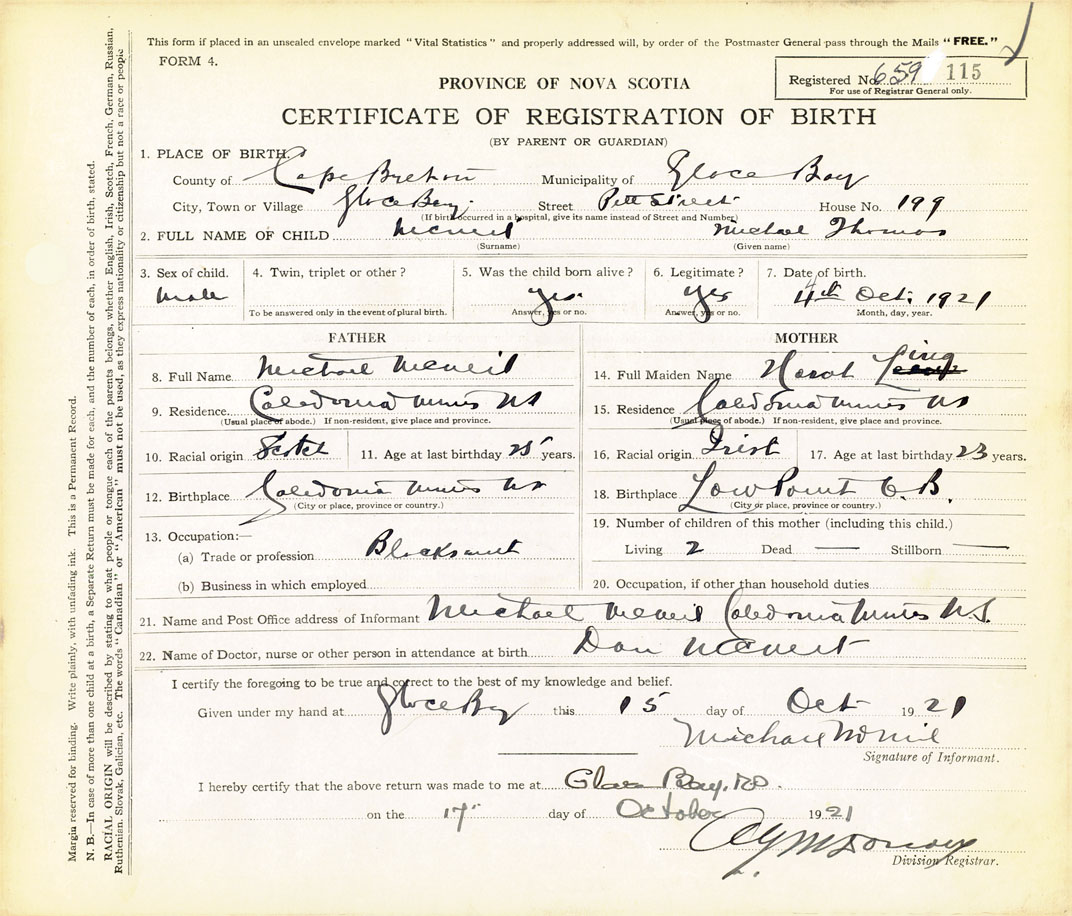 This form if placed in an unsealed envelope marked "Vital Statistics" and properly addressed will, by order of the Postmaster General pass through the Mails "FREE."
FORM 4.
Registered No. 659 115
For use of Registrar General only.
PROVINCE OF NOVA SCOTIA
CERTIFICATE OF REGISTRATION OF BIRTH
(BY PARENT OR GUARDIAN)
1. PLACE OF BIRTH.
County of Cape Breton Municipality of Glace Bay
City, Town or Village Glace Bay Street Pitt Street House No. 199
(If birth occurred in a hospital, give its name instead of Street and Number)
2. FULL NAME OF CHILD McNeil Michael Thomas
(Surname) (Given name)
3. Sex of child. 4. Twin, triplet or other? 5. Was the child born alive? 6. Legitimate? 7. Date of birth.
Male yes. yes 4th Oct. 1921
To be answered only in the event of plural birth. Answer, yes or no. Answer, yes or no. Month, day, year.
FATHER MOTHER
8. Full Name Michael McNeil 14. Full Maiden Name Sarah
9. Residence Caledonia Mines NS 15. Residence Caledonia Mines NS
(Usual place of abode.) If non-resident, give place and province. (Usual place of abode.) If non-resident, give place and province.
10. Racial origin Scotch 11. Age at last birthday 25 years. 16. Racial origin Irish 17. Age at last birthday 23 years.
12. Birthplace Caledonia Mines NS 18. Birthplace Low Point C.B.
(City or place, province or country.) (City or place, province or country.)
13. Occupation:— 19. Number of children of this mother (including this child.)
(a) Trade or profession Blacksmith Living 2 Dead — Stillborn —
(b) Business in which employed 20. Occupation, if other than household duties
21. Name and Post Office address of Informant Michael McNeil Caledonia Mines N.S.
22. Name of Doctor, nurse or other person in attendance at birth Dan
I certify the foregoing to be true and correct to the best of my knowledge and belief.
Given under my hand at Glace Bay this 15 day of Oct 1921
Michael McNeil
Signature of Informant.
I hereby certify that the above return was made to me at Glace Bay,
on the 17 day of October 1921
Division Registrar.
Margin reserved for binding. Write plainly, with unfading ink. This is a Permanent Record.
N. B.—In case of more than one child at a birth, a Separate Return must be made for each, and the number of each, in order of birth, stated.
RACIAL ORIGIN will be described by stating to what people or tongue each of the parents belongs, whether English, Irish, Scotch, French, German, Russian,
Ruthenian, Slovak, Galician, etc. The words "Canadian" or "American" must not be used, as they express nationality or citizenship but not a race or people